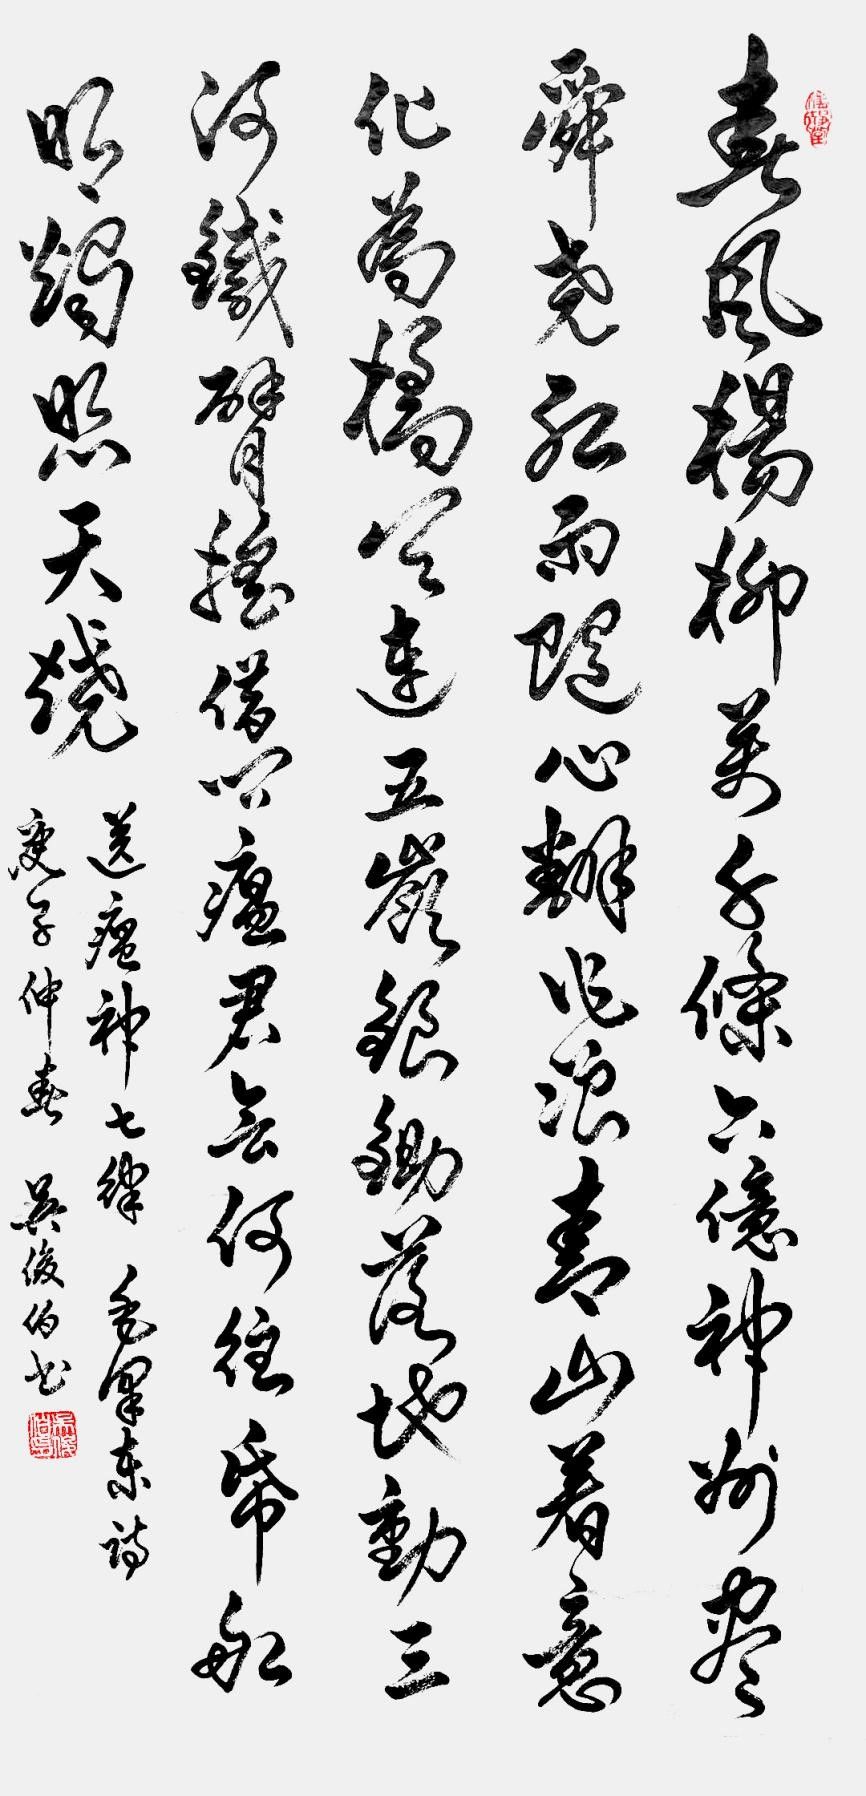 春風楊柳萬千條六億神州盡
舜尧紅雨隨心翻作浪青山着意
化為橋天連五嶺銀鋤落地動三
河鐵臂搖借問瘟君何往帋船
明燭照天燒
送瘟神七律 毛澤東詩
庚子仲春 吳俊伯书